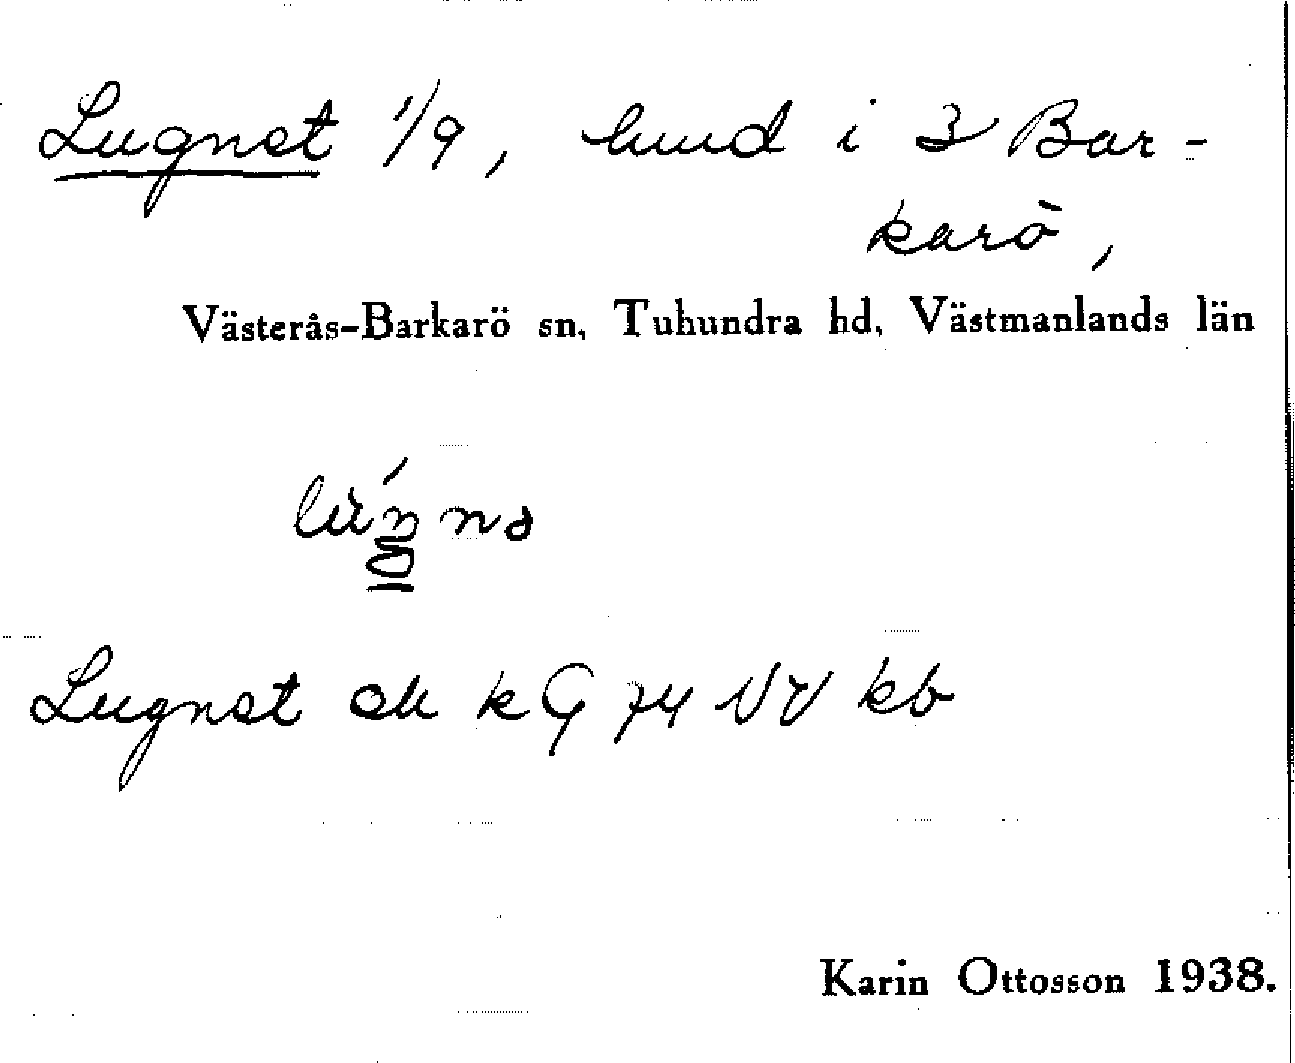 Lugnet 1/9, lund i 3 Bar-
karö,
Västerås-Barkarö sn, Tuhundra hd, Västmanlands län
Lugnet ek kG 74 NV kb
Karin Ottosson 1938.